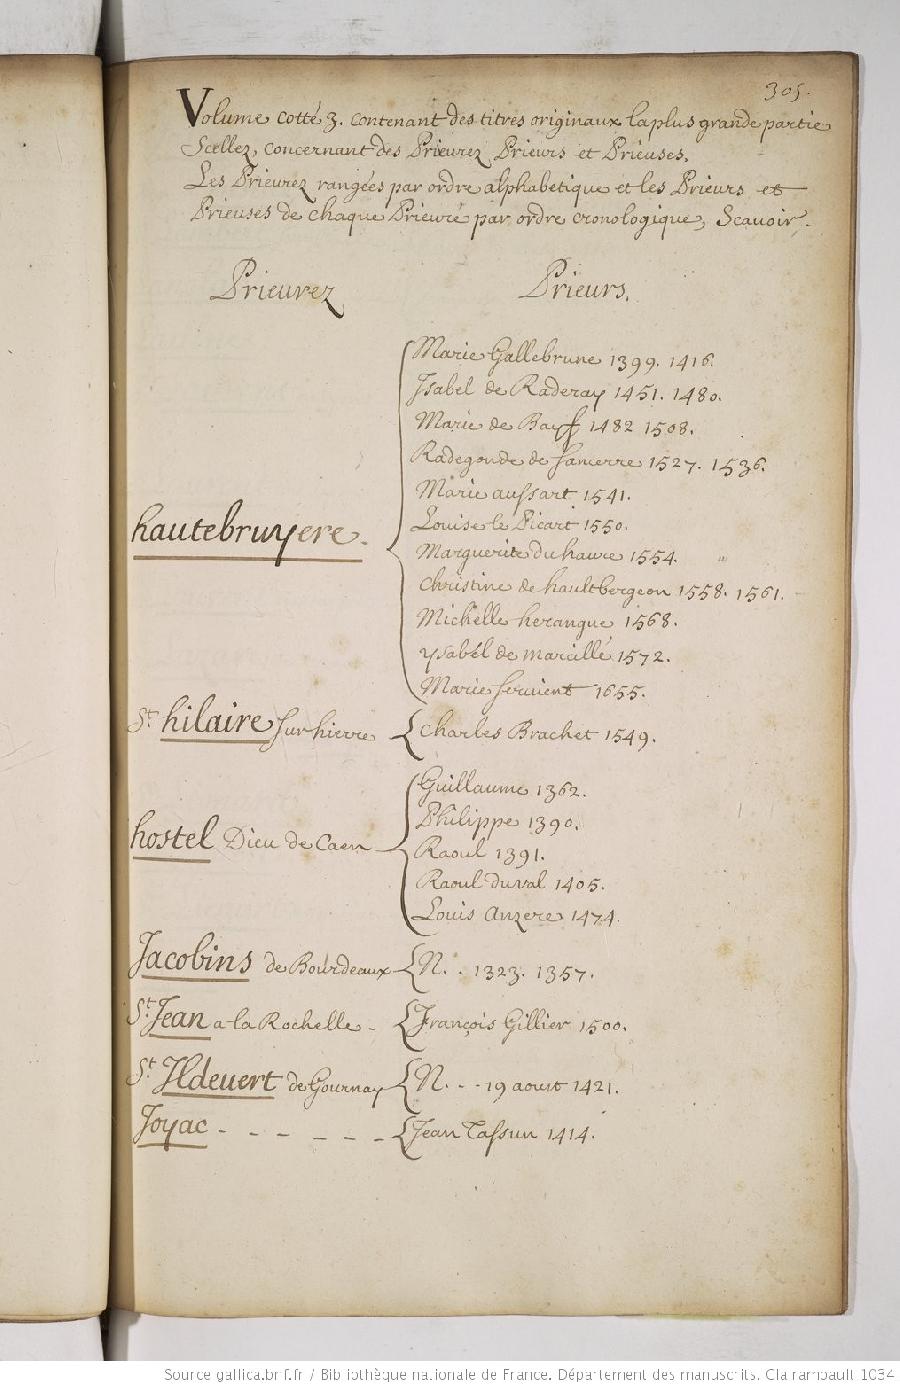 305.
Volume cotté 3. contenant des titres originaux la plus grande partie
Scellez, concernant des Prieurez Prieurs et Prieuses.
Les Prieurez rangées par ordre alphabetique et les Prieurs et
Prieuses de chaque Prieuré par ordre cronologique, Scauoir.
Prieurez Prieurs.
Marie Gallebrune 1399. 1416.
Isabel de Raderay 1451. 1480.
Marie de Bayf 1482 1508.
Radegonde de Sancerre 1527. 1536.
Marie aussart 1541.
Louise le Picart 1550.
hautebruyere Marguerite du haure 1554.
Christine de haultbergeon 1558. 1561.
Michelle herangue 1568.
ysabel de marcillé 1572.
Marie seruient 1655.
St. hilaire sur hierre Charles Brachet 1549.
Guillaume 1362.
Philippe 1390.
hostel Dieu de Caen Raoul 1391.
Raoul duval 1405.
Louis anzere 1474.
Jacobins de Bourdeaux N. . 1323. 1357.
St. Jean a la Rochelle - François Gillier 1500.
St. Ildeuert de Gournay N. - - 19 aoust 1421.
Joyac - - - - - - Jean Tassun 1414.
Source gallica.bnf.fr / Bibliothèque nationale de France. Département des manuscrits. Clairambault 1034